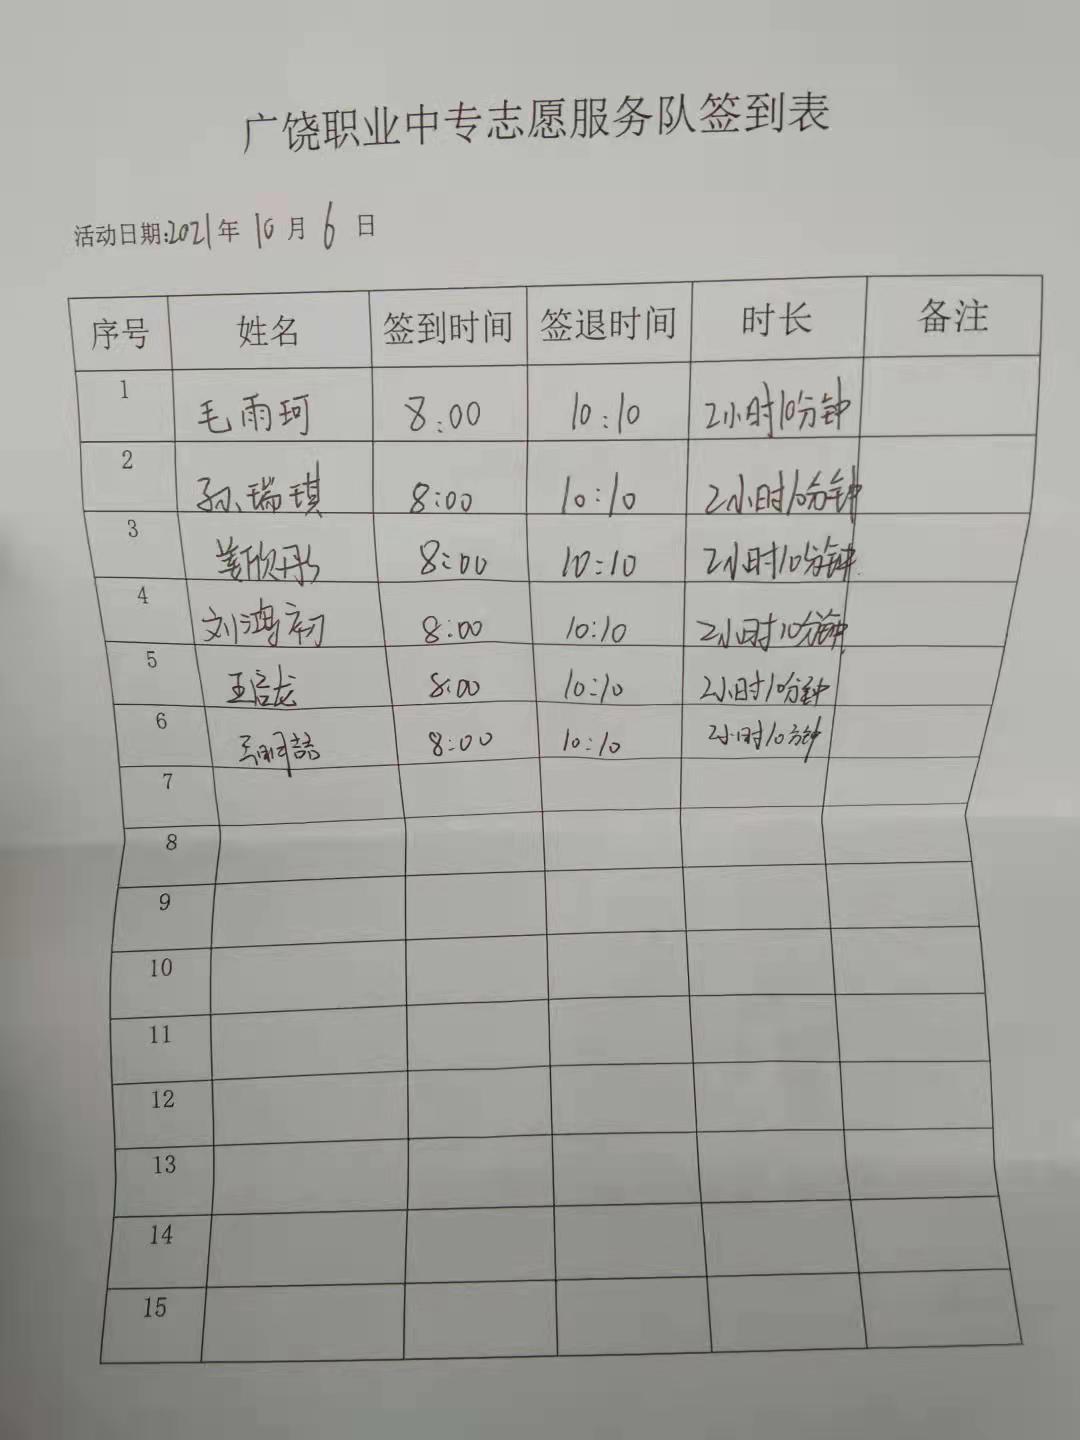 广饶职业中专志愿服务队签到表
活动日期:2021年 10月 6 日
序号 姓名 签到时间 签退时间 时长 备注
1 毛雨珂 8:00 10:10 2小时10分钟
2 孙瑞琪 8:00 10:10 2小时10分钟
3 姜欣彤 8:00 10:10 2小时10分钟
4 刘鸿初 8:00 10:10 2小时10分钟
5 8:00 10:10 2小时10分钟
6 8:00 10:10 2小时10分钟
7
8
9
10
11
12
13
14
15